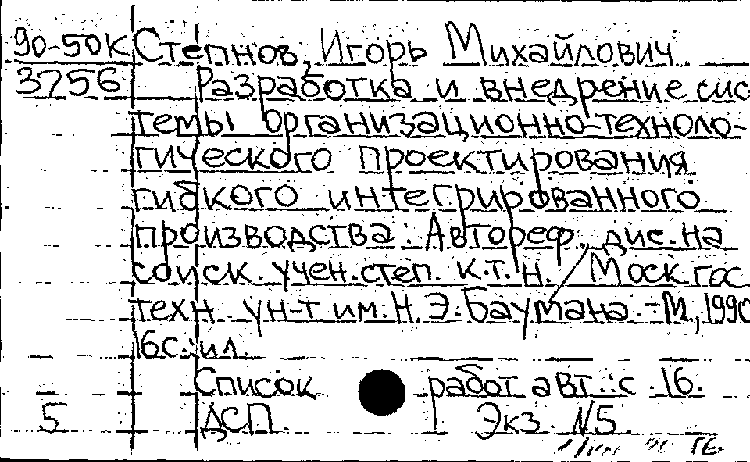 90-50К Степнов, Игорь Михайлович.
3756 Разработка и внедрение сис-
темы организационно-техноло-
гического проектирования
гибкого интегрированного
производства: Автореф. дис. на
соиск. учен. степ. к.т.н. / Моск гос
техн. ун-т им. Н. Э. Баумана. - М., 1990
16с.: ил.
Список работ авт.: с. 16.
5 ДСП. Экз. N5.